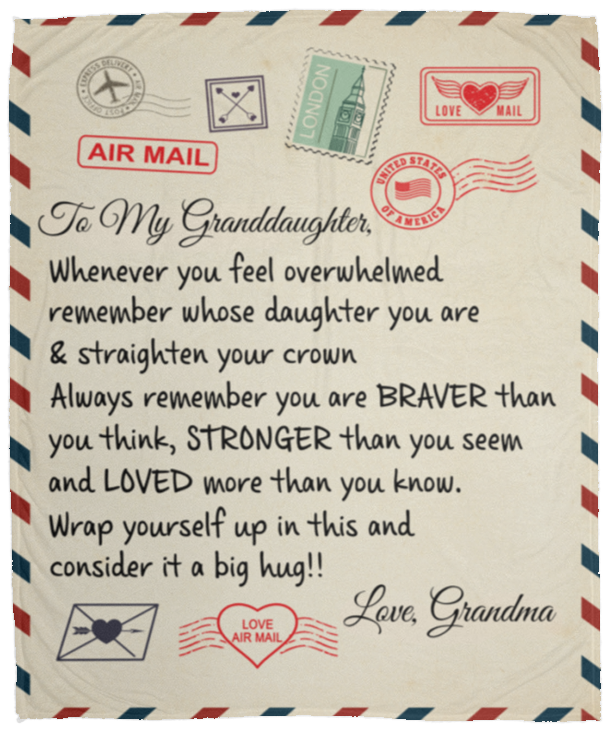 EXPRESS DELIVERY • AIR VAN • POST OFFICE
LONDON
LOVE MAIL
AIR MAIL
UNITED STATES
OF AMERICA
To My Granddaughter,
Whenever you feel overwhelmed
remember whose daughter you are
& straighten your crown
Always remember you are BRAVER than
you think, STRONGER than you seem
and LOVED more than you know.
Wrap yourself up in this and
consider it a big hug!!
Love, Grandma
LOVE
AIR MAIL